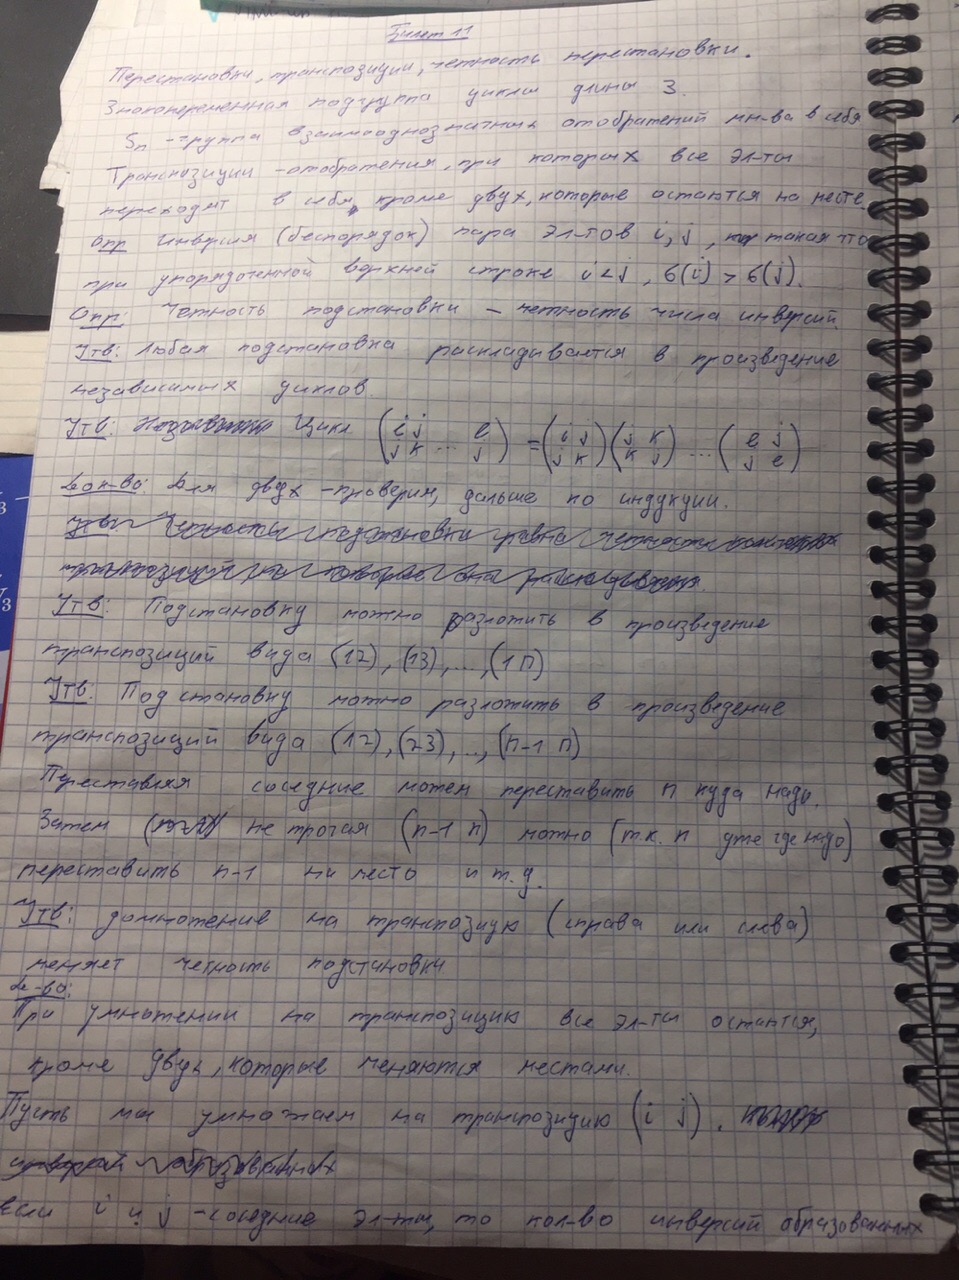 Билет 11
Перестановки, транспозиции, четность перестановки.
Знакопеременная подгруппа циклы длины 3.
Sn - группа взаимооднозначных отображений мн-ва в себя
Транспозиции - отображения, при которых все эл-ты
переходят в себя, кроме двух, которые остаются на месте.
Опр Инверсия (беспорядок) пара эл-тов i, j, такая что
при упорядоченной верхней строке i < j, б(i) > б(j).
Опр: Четность подстановки - четность числа инверсий.
Утв: Любая подстановка раскладывается в произведение
независимых циклов.
Утв: Цикл (i j ... e / j k ... j) = (i j / j k)(j k / k j) ... (e j / j e)
Док-во: Для двух - проверим, дальше по индукции.
Утв: Четность подстановки равна четности
Утв: Подстановку можно разложить в произведение
транспозиций вида (12), (13), ..., (1 n)
Утв. Подстановку можно разложить в произведение
транспозиций вида (12), (23), ..., (n-1 n)
Переставляя соседние можем переставить n куда надо.
Затем не трогая (n-1 n) можно (т.к. n уже где надо)
переставить n-1 на место и т.д.
Утв: домножение на транспозицию (справа или слева)
меняет четность подстановки
Д-во:
При умножении на транспозицию все эл-ты остаются,
кроме двух, которые меняются местами.
Пусть мы умножаем на транспозицию (i j).
если i и j - соседние эл-ты, то кол-во инверсий образованных